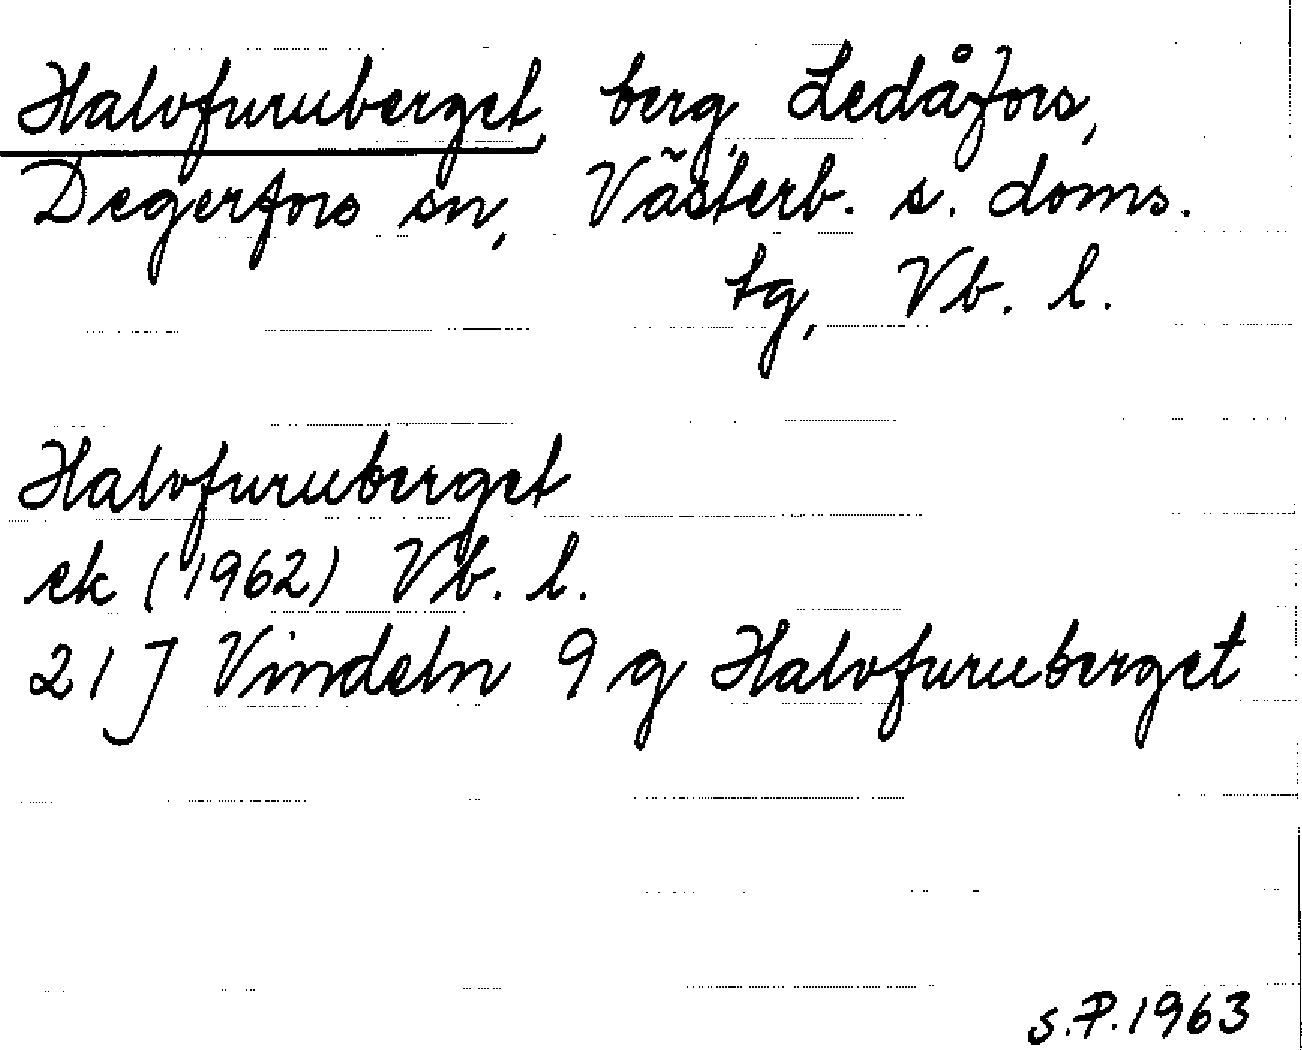 Halvfuruberget, berg, Ledåfors,
Degerfors sn, Västerb. s. doms.
tg, Vb. l.
Halvfuruberget
ek (1962) Vb. l.
21 J Vindeln 9 g Halvfuruberget
S.P. 1963